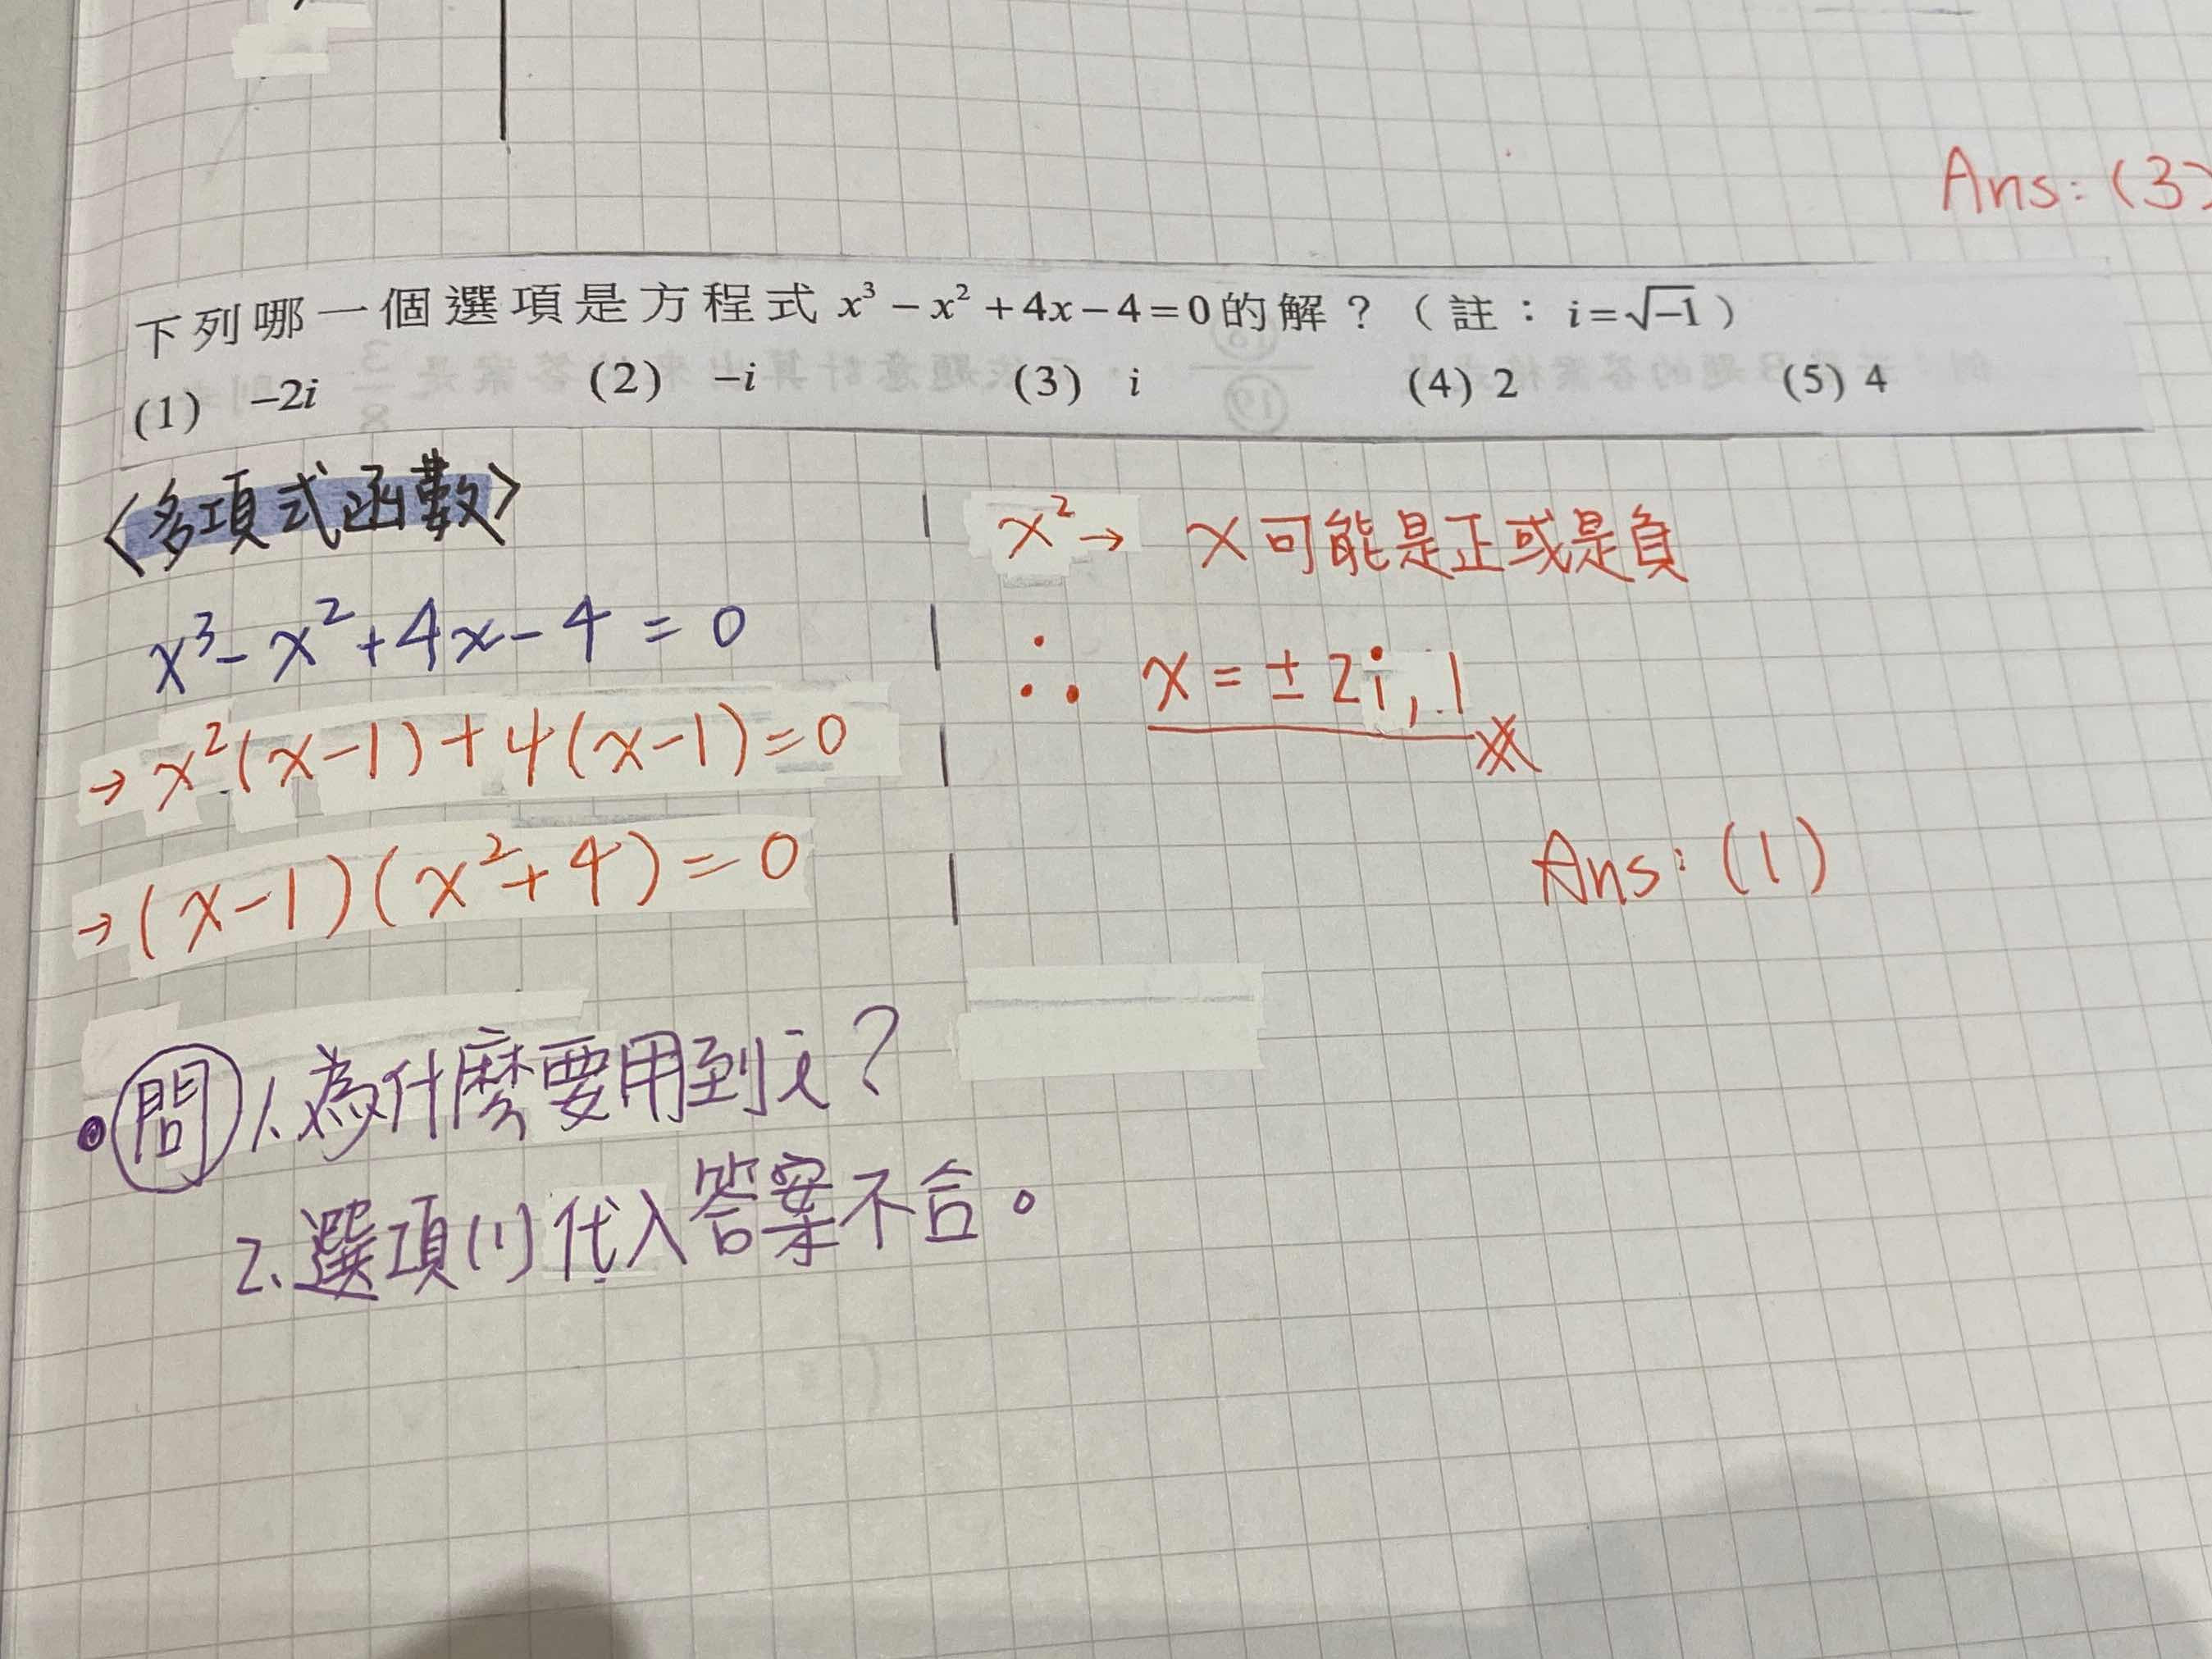 Ans: (3)
下列哪一個選項是方程式 x³ − x² + 4x − 4 = 0 的解？（註：i = √−1）
(1) −2i (2) −i (3) i (4) 2 (5) 4
〈多項式函數〉
x³ − x² + 4x − 4 = 0
→ x²(x−1) + 4(x−1) = 0
→ (x−1)(x²+4) = 0
x² → x 可能是正或是負
∴ x = ± 2i, 1
Ans: (1)
問 1. 為什麼要用到 i？
2. 選項(1)代入答案不合。